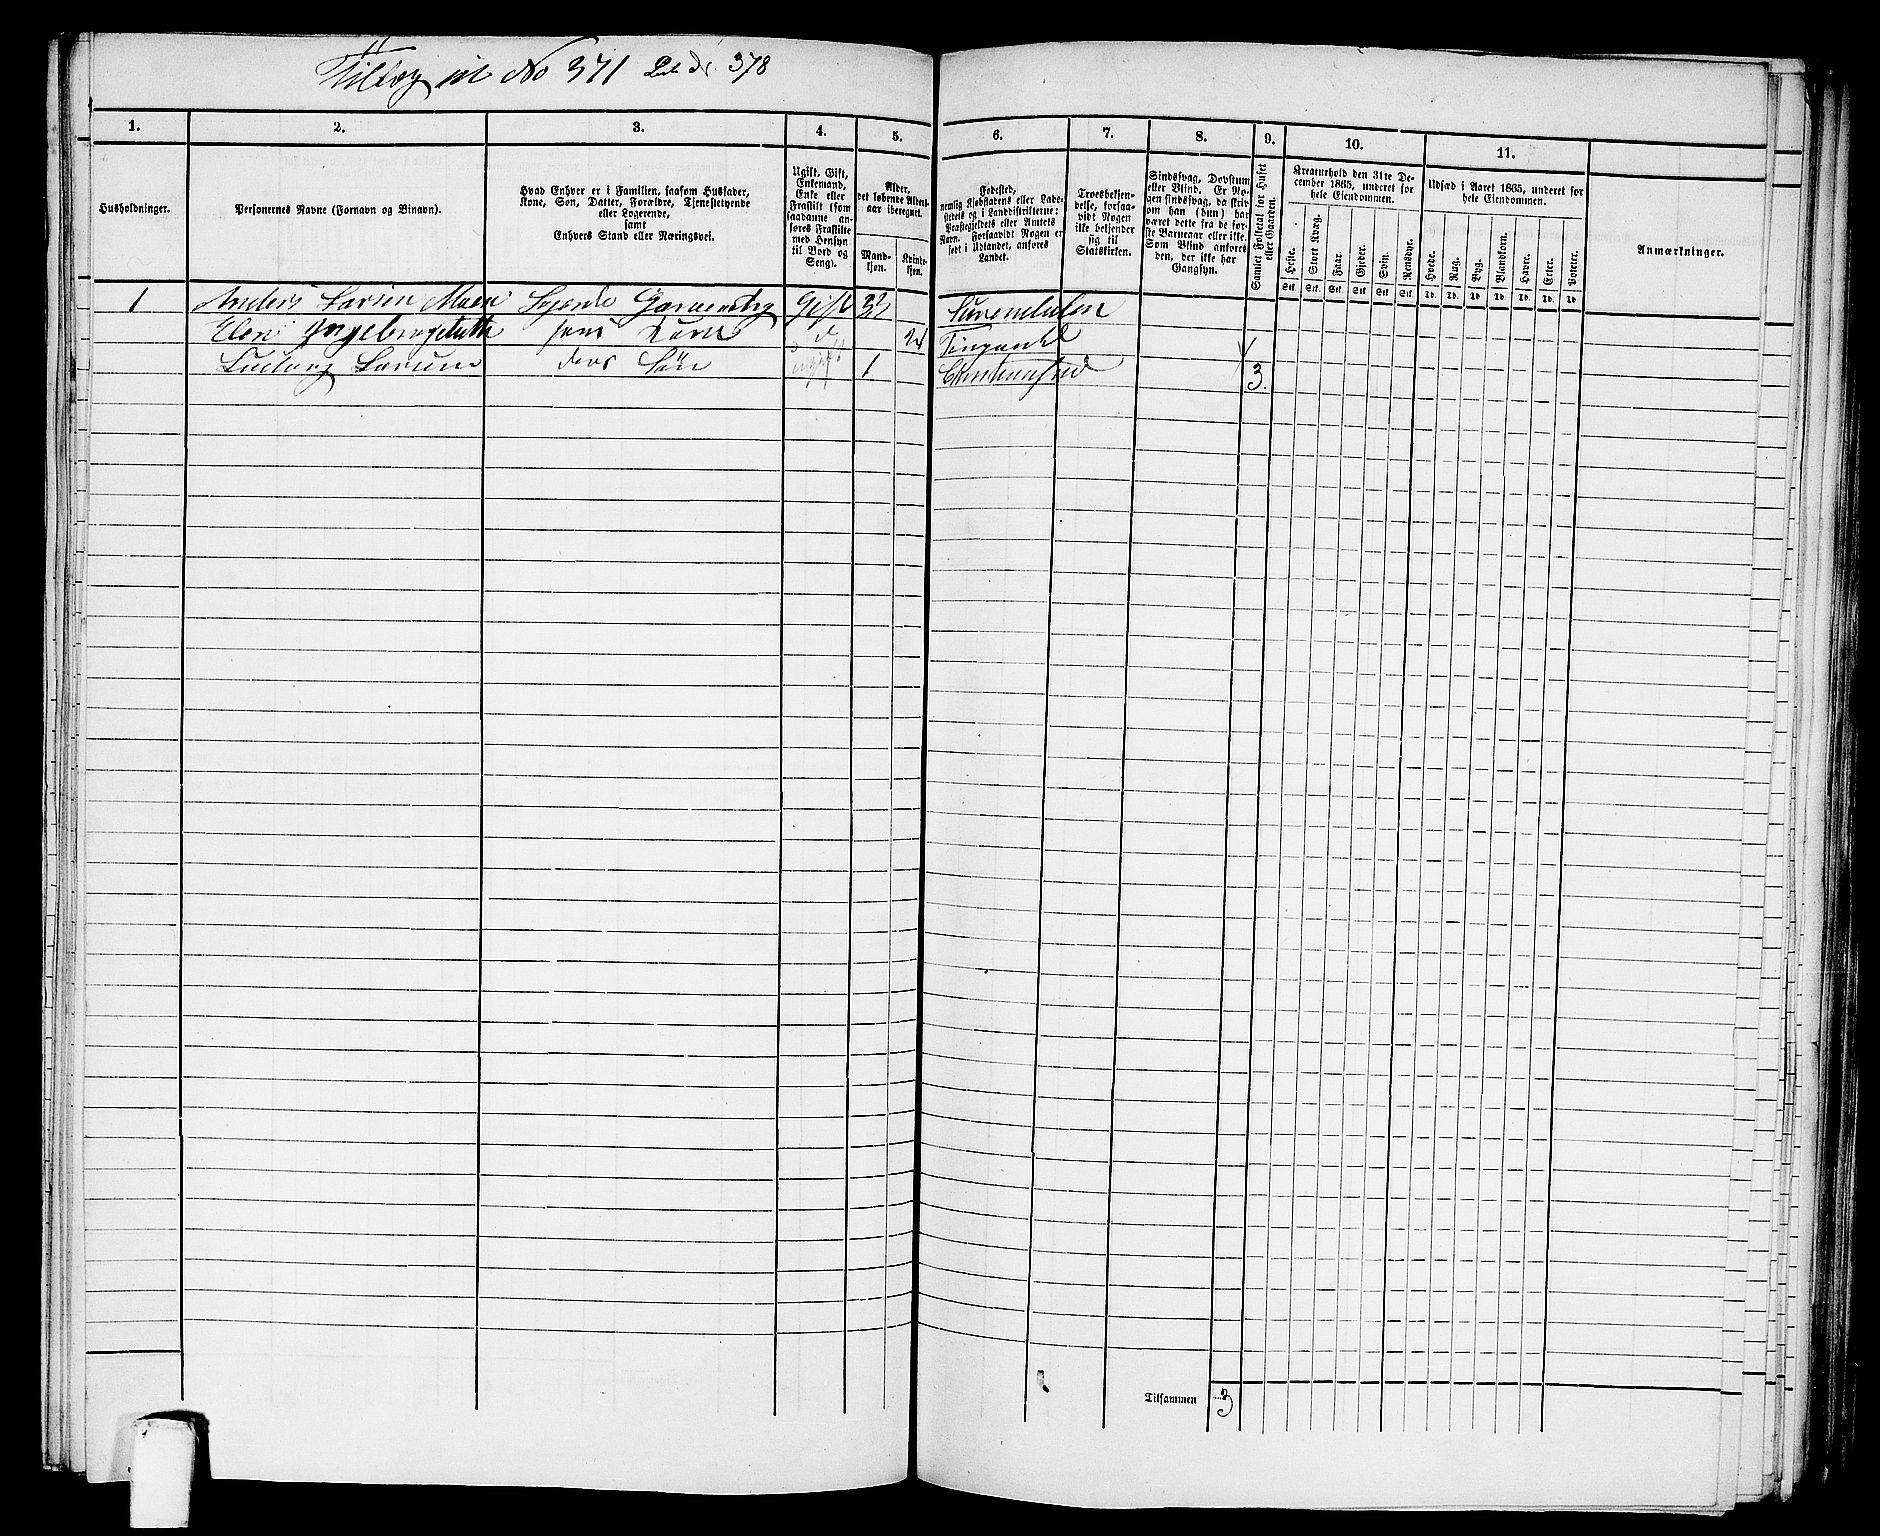 Tillæg til No 371 378
1.
2.
3.
4.
5.
6.
7.
8.
9.
10.
11.
Husholdninger.
Personernes Navne (Fornavn og Binavn).
Hvad Enhver er i Familien, saasom Husfader,
Kone, Søn, Datter, Forældre, Tjenestetyende
eller Logerende,
samt
Enhvers Stand eller Næringsvei.
Ugift, Gift,
Enkemand,
Enke eller
Fraskilt (som
saadanne an-
føres Fraskilte
med Hensyn
til Bord og
Seng).
Alder,
det løbende Alders-
aar iberegnet.
Mand-
kjøn.
Kvinde-
kjøn.
Fødested,
nemlig Kjøbstadens eller Lade-
stedets og i Landdistrikterne:
Præstegjeldets eller Amtets
Navn. Forsaavidt Nogen er
født i Udlandet, anføres
Landet.
Troesbekjen-
delse, forsaa-
vidt Nogen
ikke bekjender
sig til
Statskirken.
Sindssvag, Døvstum
eller Blind. Er No-
gen sindssvag, da skriv
om han (hun) har
været dette fra de før-
ste Barneaar eller ikke.
Som Blind anføres
den, der ikke har
Gangsyn.
Samlet Folketal for Huset
eller Gaarden.
Kreaturhold den 31te De-
cember 1865, underet for
hele Eiendommen.
Heste.
Stort Kvæg.
Faar.
Gjeder.
Svin.
Rensdyr.
Stk. Stk. Stk. Stk. Stk. Stk.
Udsæd i Aaret 1865, underet for
hele Eiendommen.
Hvede.
Rug.
Byg.
Blandkorn.
Havre.
Erter.
Poteter.
Td. Td. Td. Td. Td. Td. Td.
Anmærkninger.
1 Anders Larsen Moen Logerende Garversvend Gift 32 Surendalen
Ingeborg hans Kone d 24
Ludvig Larsen deres Søn ugift 1 Christiansand 3.
Tilsammen 3